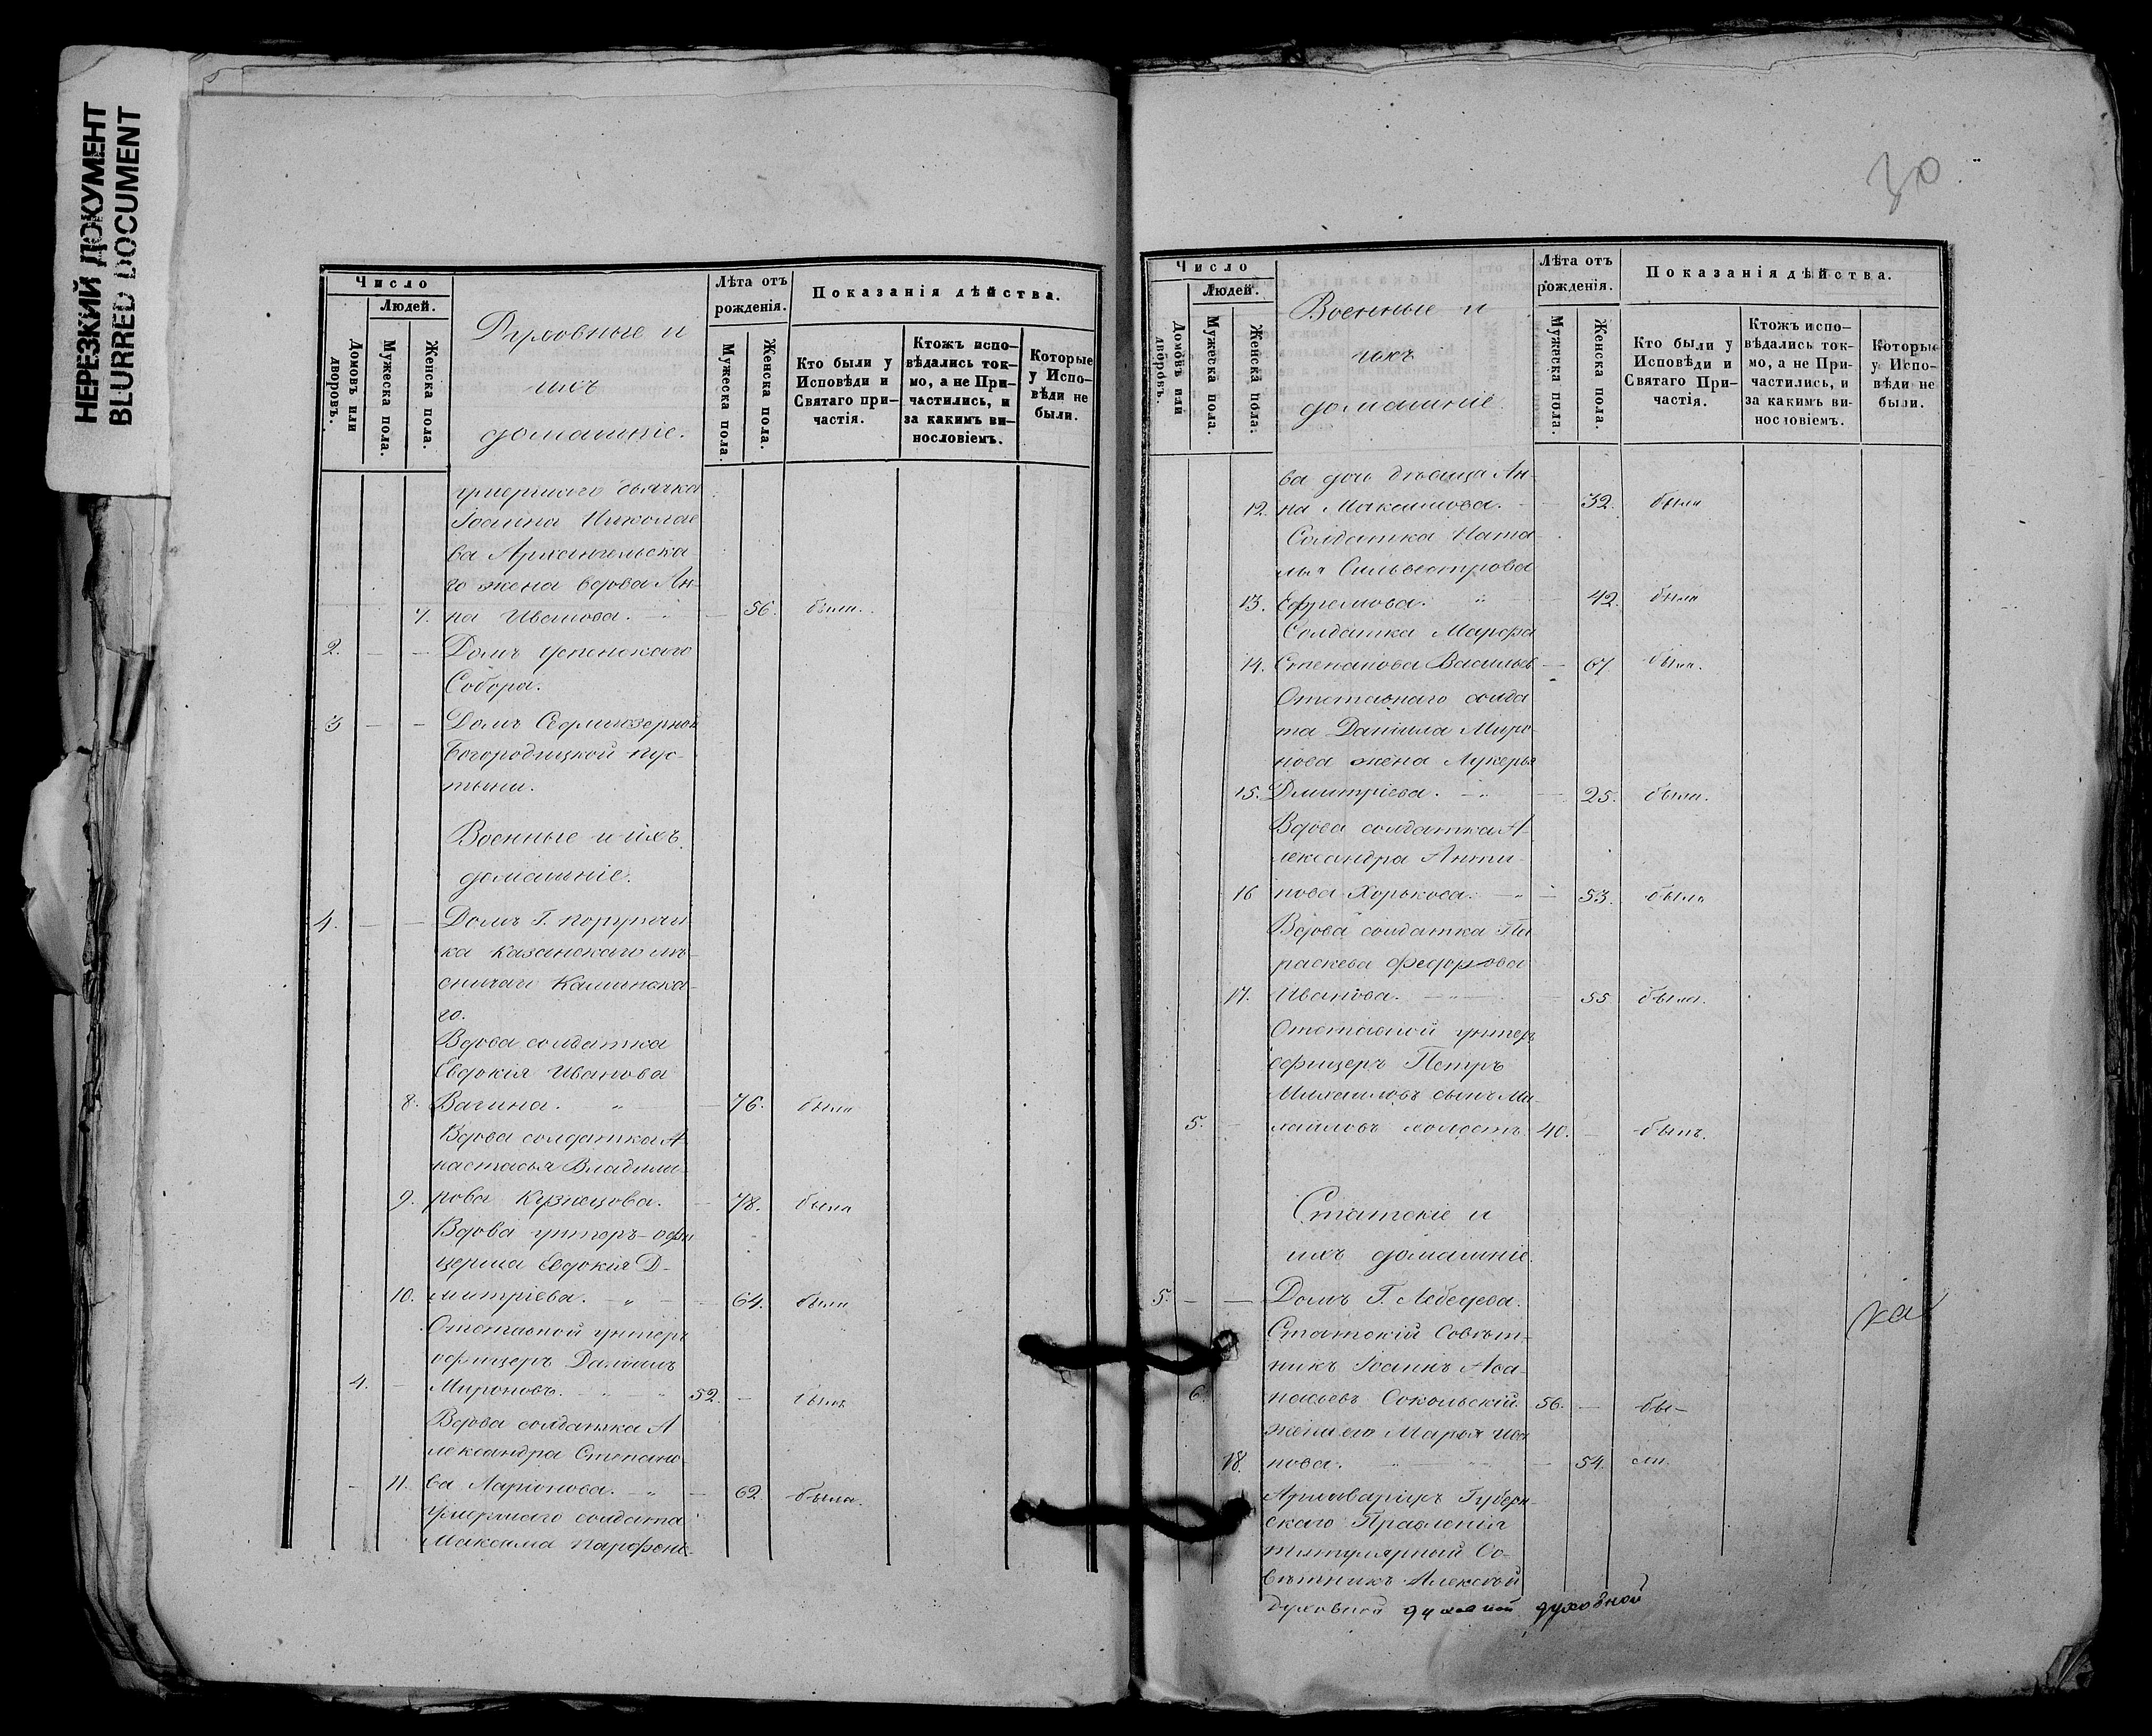 НЕРЕЗКИЙ ДОКУМЕНТ
BLURRED DOCUMENT
Число
Людей.
Домовъ или дворовъ.
Мужеска пола.
Женска пола.
Духовные и
ихъ
домашніе.
Лѣта отъ
рожденія.
Мужеска пола.
Женска пола.
Показанія дѣйства.
Кто были у
Исповѣди и
Святаго при-
частія.
Ктожъ испо-
вѣдались ток-
мо, а не При-
частились, и
за какимъ ви-
нословіемъ.
Которые
у Испо-
вѣди не
были.
умершаго дьячка
Іоанна Николае
ва Архангельска
го жена вдова Ан-
7. на Иванова. — 56. была.
2. — — Домъ Успенскаго
Собора.
3 — — Домъ Седмиозерной
Богородицкой пус-
тыни.
Военные и ихъ
домашніе.
4. — — Домъ Г. Поручи
ка Казанскаго лѣ-
сничаго Калинска-
го.
Вдова солдатка
Евдокія Иванова
8. Вагина. „ — 76. была
Вдова солдатка А
настасья Владими-
9. рова Кузнецова. — 78. была
Вдова унтеръ-офи
церша Евдокія Д-
10. митріева. — „ — 64. была
Отставной унтеръ
офицеръ Даніилъ
4. — Мироновъ. 52. — былъ
Вдова солдатка А
лександра Степано-
— 11. ва Ларіонова. — „ — 62. была.
Умершаго солдата
Максима Парфене-
30
Число
Людей.
Домовъ или дворовъ.
Мужеска пола.
Женска пола.
Военные и
ихъ
домашніе.
Лѣта отъ
рожденія.
Мужеска пола.
Женска пола.
Показанія дѣйства.
Кто были у
Исповѣди и
Святаго При-
частія.
Ктожъ испо-
вѣдались ток-
мо, а не При-
частились, и
за какимъ ви-
нословіемъ.
Которые
у Испо-
вѣди не
были.
ва дочь дѣвица Ан-
12. на Максимова. — 32. была
Солдатка Ната-
лья Сильвестрова
13. Ефремова. „ — 42. была
Солдатка Марфа
14. Степанова Васильев — 67 была.
Отставнаго солда
та Даніила Миро-
нова жена Лукерья
15. Дмитріева. — „ — 25. была.
Вдова солдатка А-
лександра Анти-
16 пова Хорькова. — „ — 53. была
Вдова солдатка Па
раскева Федорова
17. Иванова. — „ — 55 была.
Отставной унтеръ
офицеръ Петръ
Михаиловъ сынъ Ми-
5. — хайловъ холостъ 40. — былъ.
Статскіе и
ихъ домашніе.
5. — — Домъ Г. Лебедева.
Статскій Совѣт-
никъ Іоаннъ Аѳа-
6. насьевъ Сокольскій 56. — бы-
жена его Марья Ива
18. нова. — 54. ли.
Архиваріусъ Губерн-
скаго Правленія
титулярный Со-
вѣтникъ Алексѣй
Духовной духовной духовной